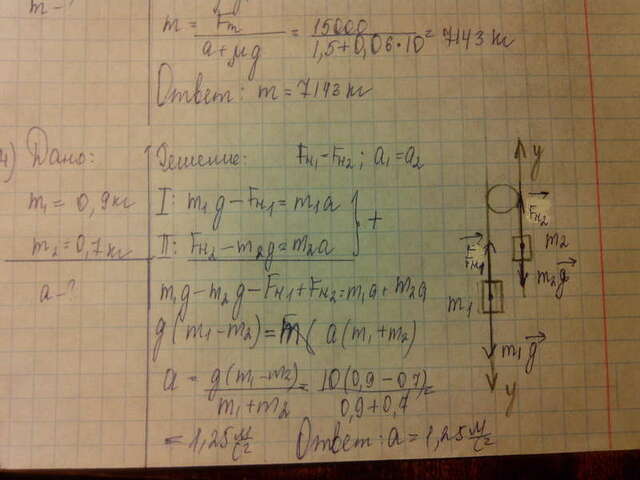 m - ?
m = Fт / (a+μg) = 15000 / (1,5+0,06·10) = 7143 кг
Ответ: m = 7143 кг
4) Дано:
m₁ = 0,9 кг
m₂ = 0,7 кг
a - ?
Решение: Fн₁ = Fн₂ ; a₁ = a₂
I: m₁g - Fн₁ = m₁a
II: Fн₂ - m₂g = m₂a
} +
m₁g - m₂g - Fн₁ + Fн₂ = m₁a + m₂a
g(m₁ - m₂) = a(m₁ + m₂)
a = g(m₁ - m₂) / (m₁ + m₂) = 10(0,9 - 0,7) / (0,9 + 0,7) =
= 1,25 м/с² Ответ: a = 1,25 м/с²
y
Fн₂
m₂
Fн₁
m₂g
m₁
m₁g
y